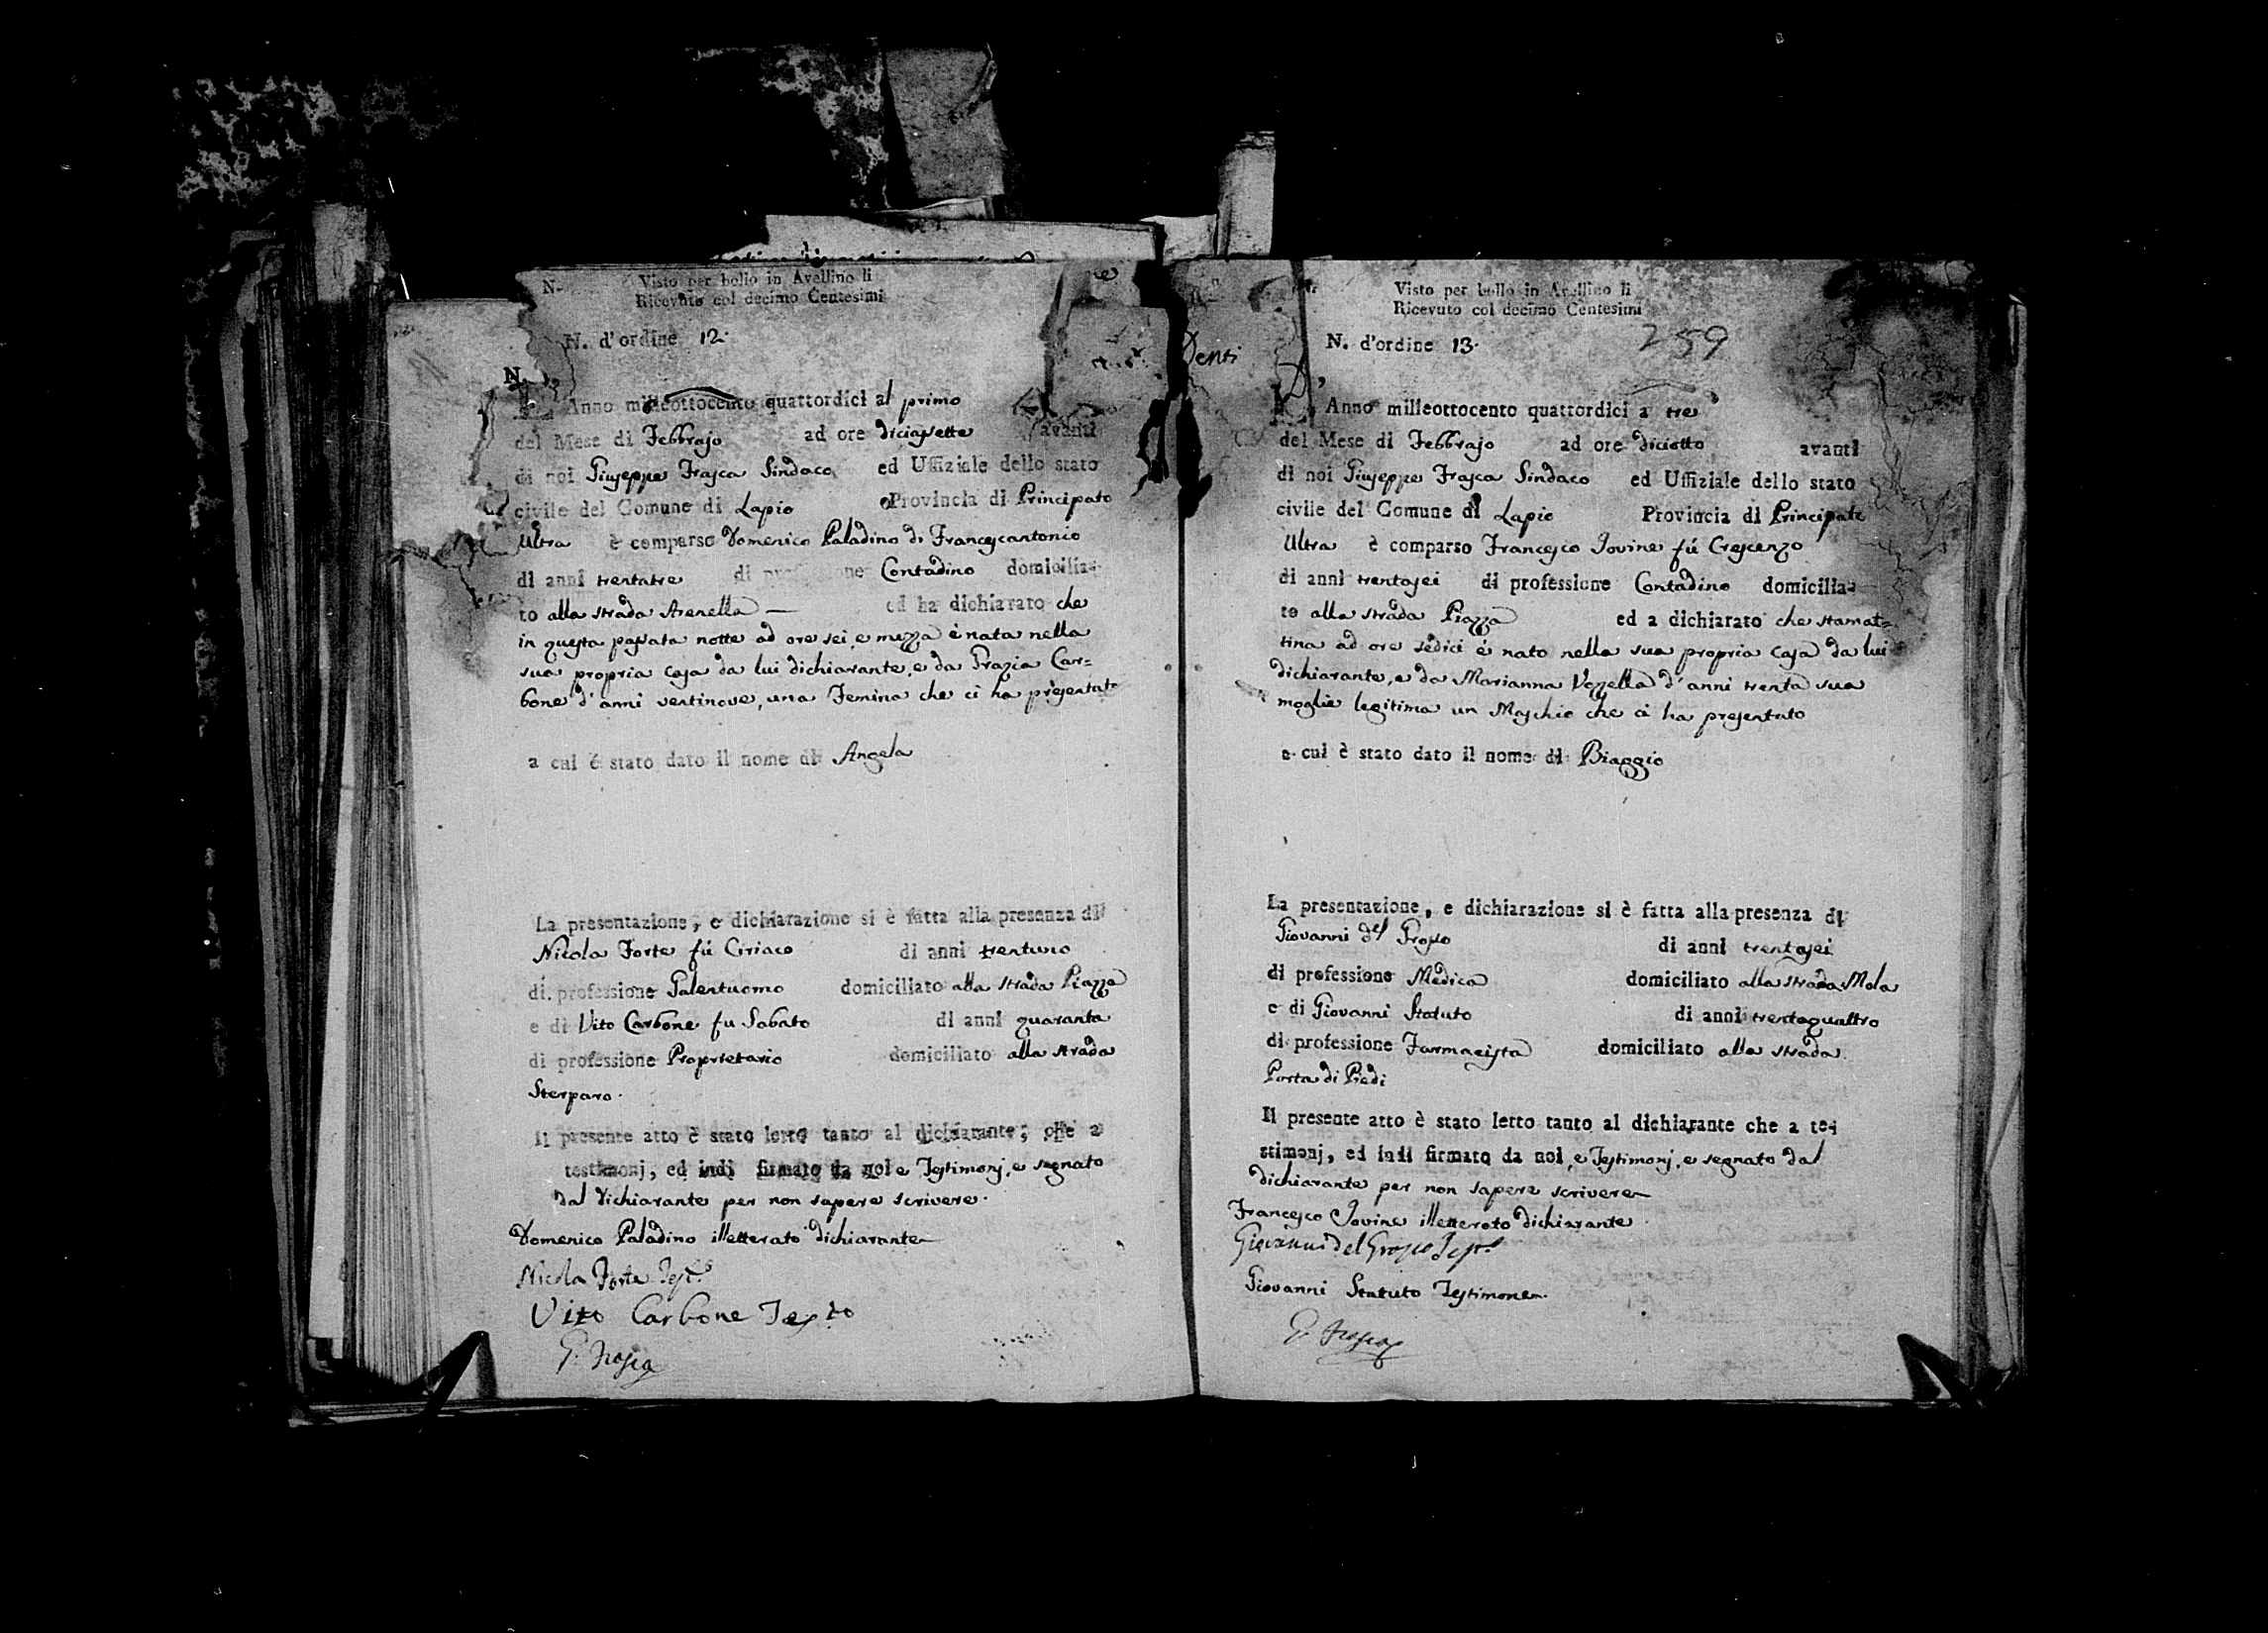 N.
Visto per bollo in Avellino li
Ricevuto col decimo Centesimi
N. d'ordine 12.
N.
Anno milleottocento quattordici al primo
del Mese di Febbrajo ad ore diciasette avanti
di noi Giuseppe Frasca Sindaco ed Uffiziale dello stato
civile del Comune di Lapio Provincia di Principato
Ultra è comparso Domenico Paladino di Francescantonio
di anni trentatre di professione Contadino domicilia-
to alla strada Arenella — ed ha dichiarato che
in questa passata notte ad ore sei, e mezza è nata nella
sua propria casa da lui dichiarante, e da Grazia Car=
bone d'anni ventinove, una Femina che ci ha presentato
a cui è stato dato il nome di Angela
La presentazione, e dichiarazione si è fatta alla presenza di
Nicola Forte fú Ciriaco di anni trentuno
di professione Galentuomo domiciliato alla strada Piazza
e di Vito Carbone fu Sabato di anni quaranta
di professione Proprietario domiciliato alla strada
Sterparo.
Il presente atto è stato letto tanto al dichiarante, che a
testimonj, ed indi firmato da noi e Testimonj, e segnato
dal dichiarante per non sapere scrivere.
Domenico Paladino illetterato dichiarante
Nicola Forte Test.o
Vito Carbone Testo
G. Frasca
Denti
Visto per bollo in Avellino li
Ricevuto col decimo Centesimi
N. d'ordine 13.
259
Anno milleottocento quattordici a tre
del Mese di Febbrajo ad ore diciotto avanti
di noi Giuseppe Frasca Sindaco ed Uffiziale dello stato
civile del Comune di Lapio Provincia di Principato
Ultra è comparso Francesco Jovine fú Crescenzo
di anni trentasei di professione Contadino domicilia-
to alla strada Piazza ed a dichiarato che stamat=
tina ad ore sedici é nato nella sua propria casa da lui
dichiarante, e da Marianna Vozzella d'anni trenta sua
moglie legitima un Maschio che ci ha presentato
a cui è stato dato il nome di Biaggio
La presentazione, e dichiarazione si è fatta alla presenza di
Giovanni del Grosso di anni trentasei
di professione Medico domiciliato alla strada Mola
e di Giovanni Statuto di anni trentaquattro
di professione Farmacista domiciliato alla strada
Porta di Piedi
Il presente atto è stato letto tanto al dichiarante che a te-
stimonj, ed indi firmato da noi, e Testimonj, e segnato dal
dichiarante per non sapere scrivere
Francesco Jovine illetterato dichiarante
Giovanni del Grosso Test.o
Giovanni Statuto Testimone
G. Frasca